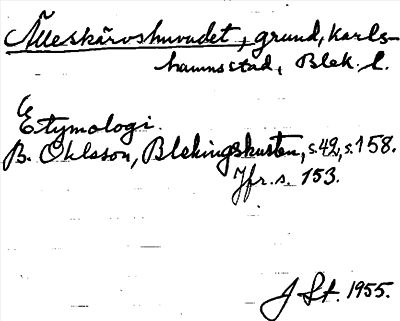 Älleskärshuvudet, grund, Karls-
hamnsstad, Blek. l.
Etymologi.
B. Ohlsson, Blekingskusten, s. 42, s. 158.
Jfr. s. 153.
J St. 1955.